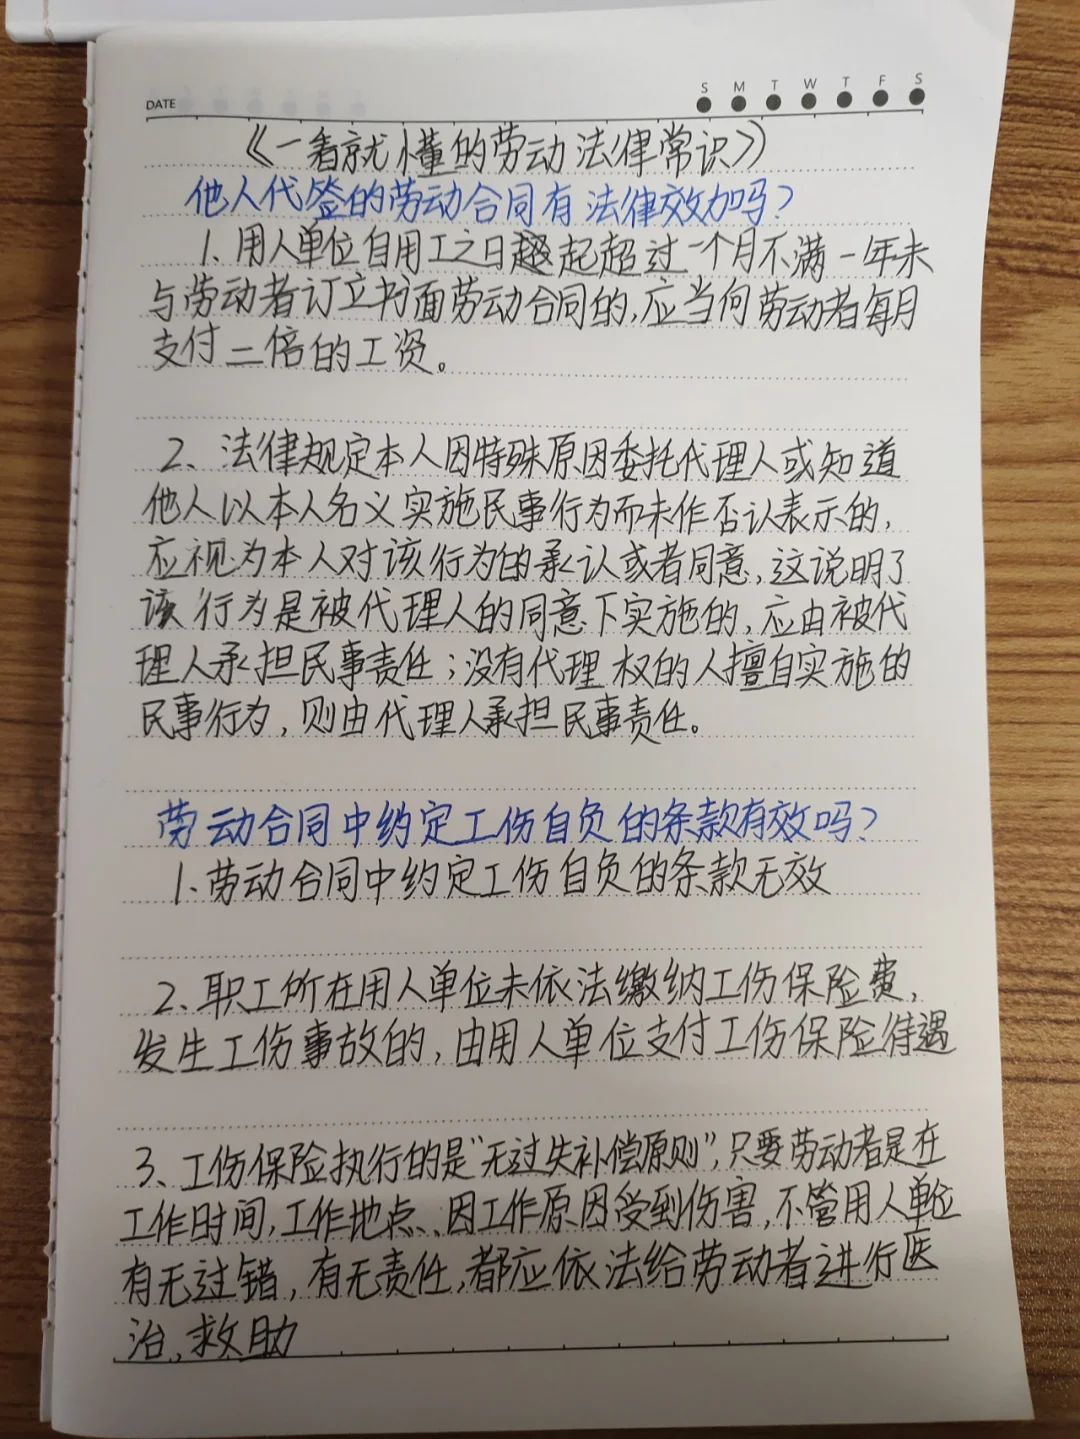 DATE
S M T W T F S
《一看就懂的劳动法律常识》
他人代签的劳动合同有法律效力吗?
1、用人单位自用工之日起超过一个月不满一年未
与劳动者订立书面劳动合同的,应当向劳动者每月
支付二倍的工资。
2、法律规定本人因特殊原因委托代理人或知道
他人以本人名义实施民事行为而未作否认表示的,
应视为本人对该行为的承认或者同意,这说明了
该行为是被代理人的同意下实施的,应由被代
理人承担民事责任;没有代理权的人擅自实施的
民事行为,则由代理人承担民事责任。
劳动合同中约定工伤自负的条款有效吗?
1、劳动合同中约定工伤自负的条款无效
2、职工所在用人单位未依法缴纳工伤保险费,
发生工伤事故的,由用人单位支付工伤保险待遇
3、工伤保险执行的是“无过失补偿原则”,只要劳动者是在
工作时间,工作地点、因工作原因受到伤害,不管用人单位
有无过错,有无责任,都应依法给劳动者进行医
治、救助